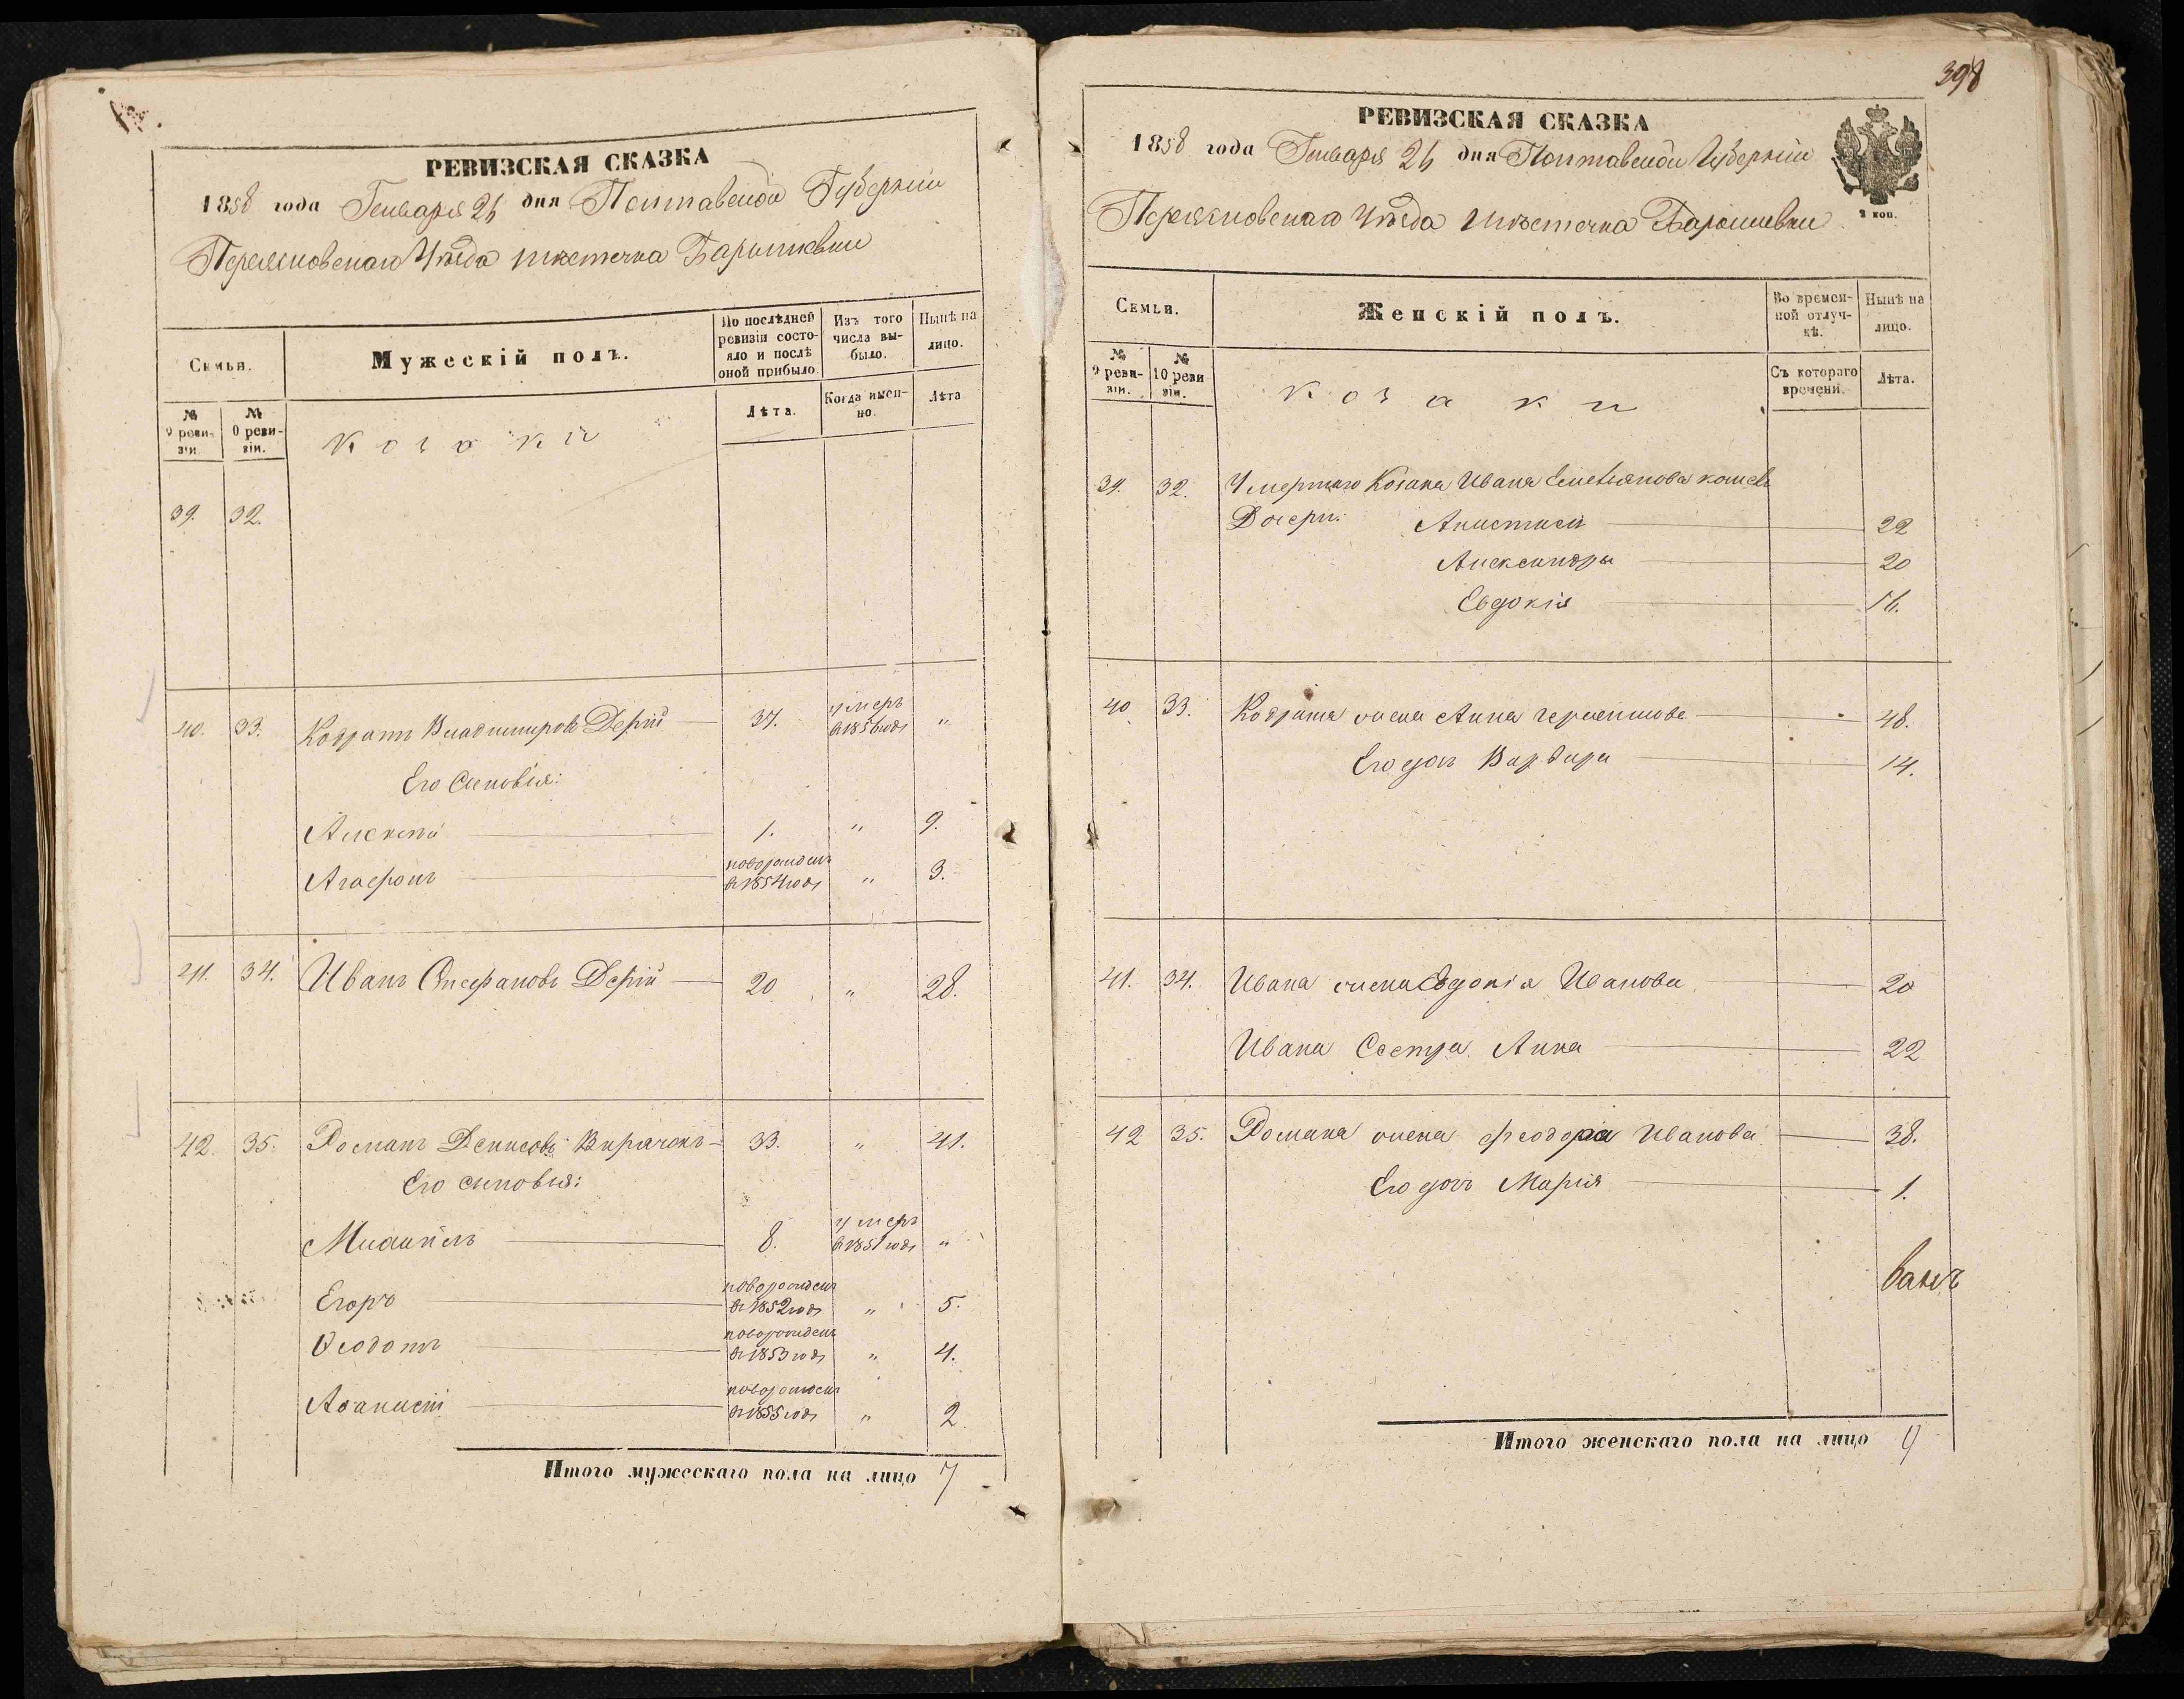 РЕВИЗСКАЯ СКАЗКА
1858 года Генваря 26 дня Полтавской Губерніи
Переясловскаго Уѣзда мѣстечка Барышевки
Семьи.
Мужескій полъ.
По послѣдней ревизіи состояло и послѣ оной прибыло.
Изъ того числа выбыло.
Нынѣ на лицо.
№ 9 ревизіи.
№ 10 ревизіи.
Козаки
Лѣта.
Когда именно.
Лѣта
39. 32.
40. 33. Кодратъ Владимировъ Дерій 37. умеръ в 1856 годѣ "
Его Сыновья:
Алексѣй 1. " 9.
Агафонъ новорожденъ в 1854 годѣ " 3.
41. 34. Иванъ Онисфановъ Дерій 20 " 28.
42. 35. Романъ Денисовъ 33. " 41.
Его сыновья:
Михаилъ 8. умеръ в 1851 годѣ "
Егоръ новорожденъ в 1852 годѣ " 5.
Ѳеодотъ новорожденъ в 1853 годѣ " 4.
Аѳанасій новорожденъ в 1855 годѣ " 2
Итого мужескаго пола на лицо 7
398
РЕВИЗСКАЯ СКАЗКА
1858 года Генваря 26 дня Полтавской Губерніи
Переясловскаго Уѣзда мѣстечка Барышевки
2 коп.
Семьи.
Женскій полъ.
Во временной отлучкѣ.
Нынѣ на лицо.
№ 9 ревизіи.
№ 10 ревизіи.
Козаки
Съ котораго времени.
Лѣта.
39. 32. Умершаго Козака Ивана Емельянова
Дочери: Анастасія 22
Александра 20
Евдокія 16.
40 33. Кодрата жена Анна 48.
Его дочь Варвара 14.
41. 34. Ивана жена Евдокія Иванова 20
Ивана Сестра Анна 22
42 35. Романа жена Феодора Иванова 38.
Его дочь Марія 1.
Итого женскаго пола на лицо 9